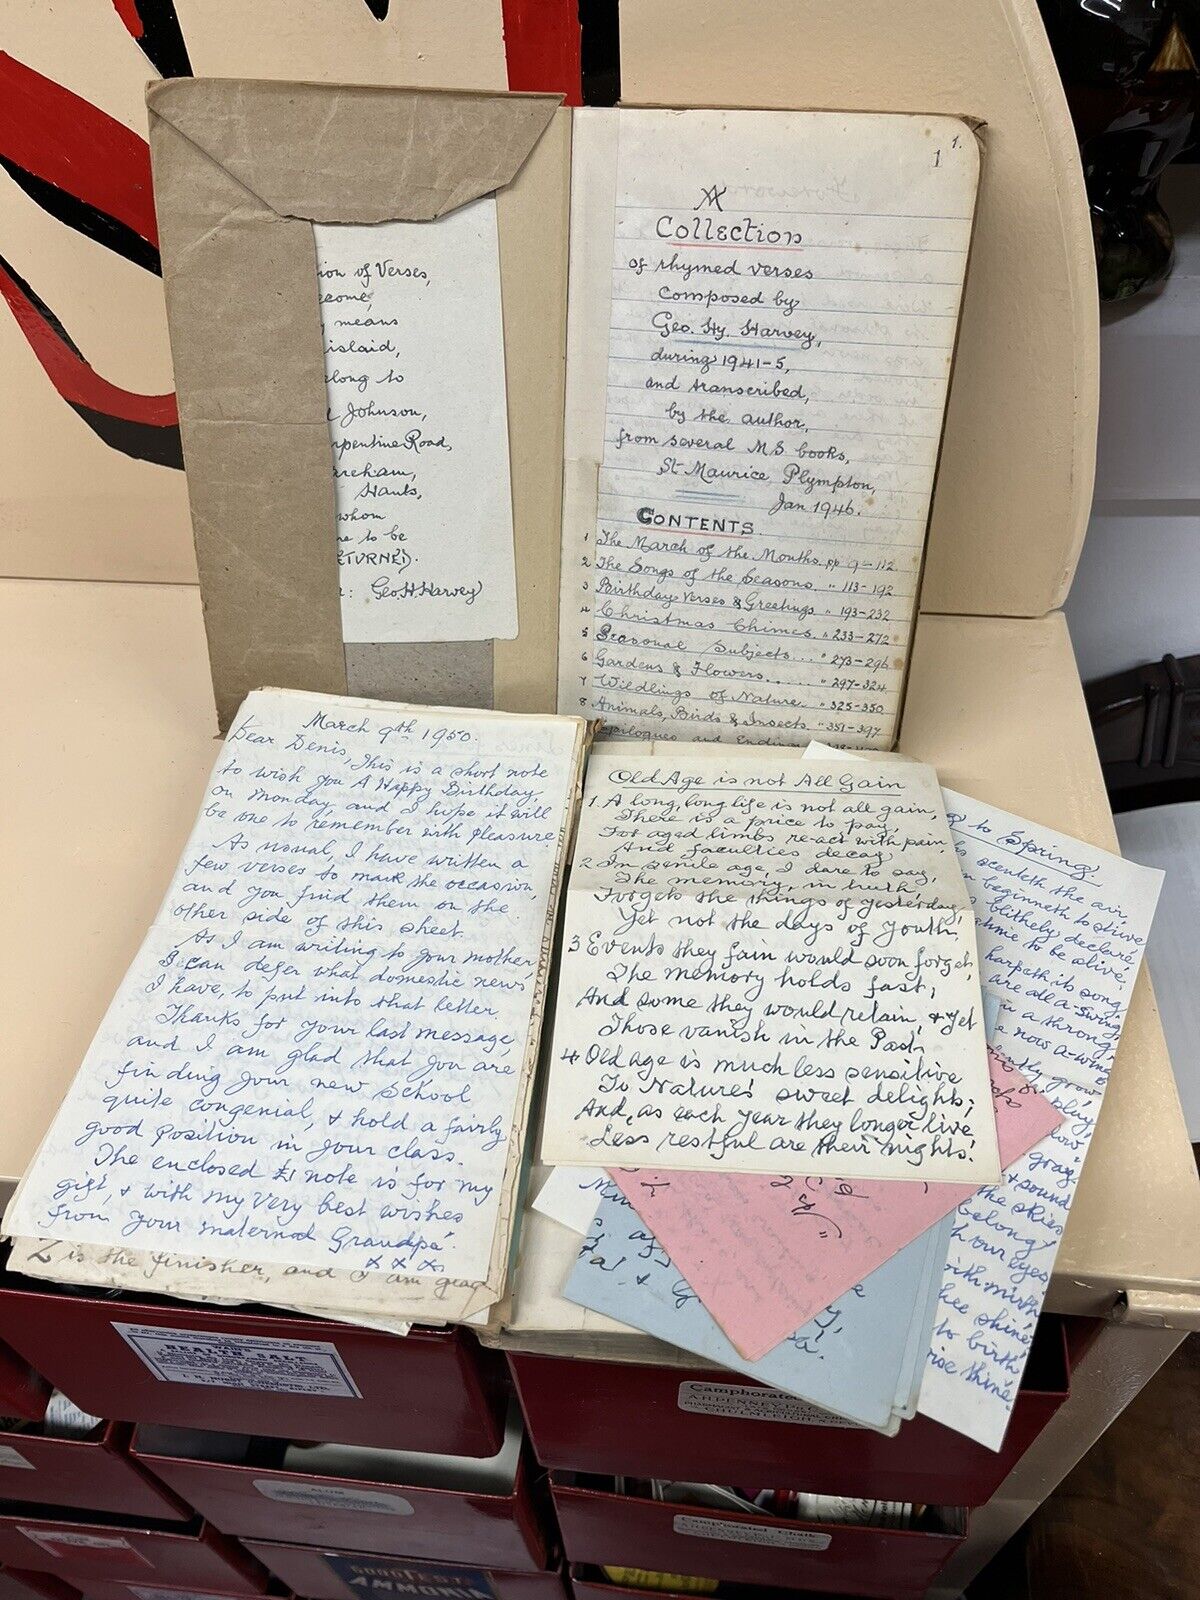 1 1.
A
Collection
of rhymed verses
Composed by
Geo. Hy. Harvey,
during 1941-5,
and transcribed,
by the author,
from several M.S. books,
St Maurice Plympton,
Jan 1946.
CONTENTS.
1 The March of the Months. pp 9-112
2 The Songs of the Seasons. " 113-192
3 Birthday Verses & Greetings " 193-232
4 Christmas Chimes. " 233-272
5 Seasonal Subjects... " 273-296
6 Gardens & Flowers...... " 297-324
7 Wildlings of Nature. " 325-350
8 Animals, Birds & Insects. " 351-397
Epilogues and Endings
ion of Verses,
come,
means
islaid,
long to
Johnson,
rpentine Road,
areham,
Hants,
whom
to be
ETURNED).
: Geo. H. Harvey
March 9th 1950.
Dear Denis, This is a short note
to wish you A Happy Birthday,
on Monday, and I hope it will
be one to remember with pleasure.
As usual, I have written a
few verses to mark the occasion,
and you find them on the
other side of this sheet.
As I am writing to your mother
I can defer what domestic news
I have, to put into that letter.
Thanks for your last message,
and I am glad that you are
finding your new School
quite congenial, & hold a fairly
good position in your class.
The enclosed £1 note is for my
gift, & with my very best wishes
from your maternal Grandpa.
x x x
Z is the finisher, and I am
Old Age is not All Gain
1. A long, long life is not all gain,
There is a price to pay,
For aged limbs re-act with pain,
And faculties decay
2 In senile age, I dare to say,
The memory, in truth
Forgets the things of yesterday,
Yet not the days of youth.
3 Events they fain would soon forget,
The memory holds fast;
And some they would retain, & yet
Those vanish in the Past.
4 Old age is much less sensitive
To Nature's sweet delights;
And, as each year they longer live
Less restful are their nights!
to Spring
scenteth the air,
beginneth to stive
blithely declare,
to be alive.
harpeth its song
are all a-swing
in a throng
now a-wing
grow
play,
& sound
the skies
belong
our eyes
with mirth
shine
to birth
thine
HEALTH SALT
Camphorated
A.H. PENNEY
CHULMLEIGH,
ALUM
Camphorated Chalk
AMMONIA